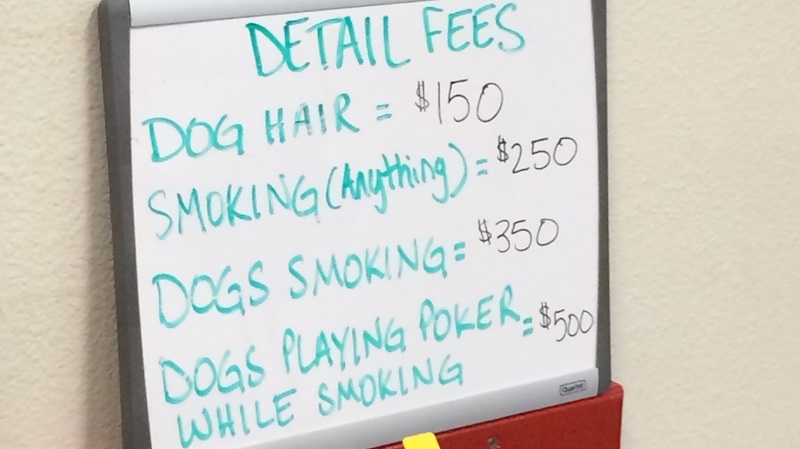 DETAIL FEES
DOG HAIR = $150
SMOKING (Anything) = $250
DOGS SMOKING = $350
DOGS PLAYING POKER = $500
WHILE SMOKING
Quartet